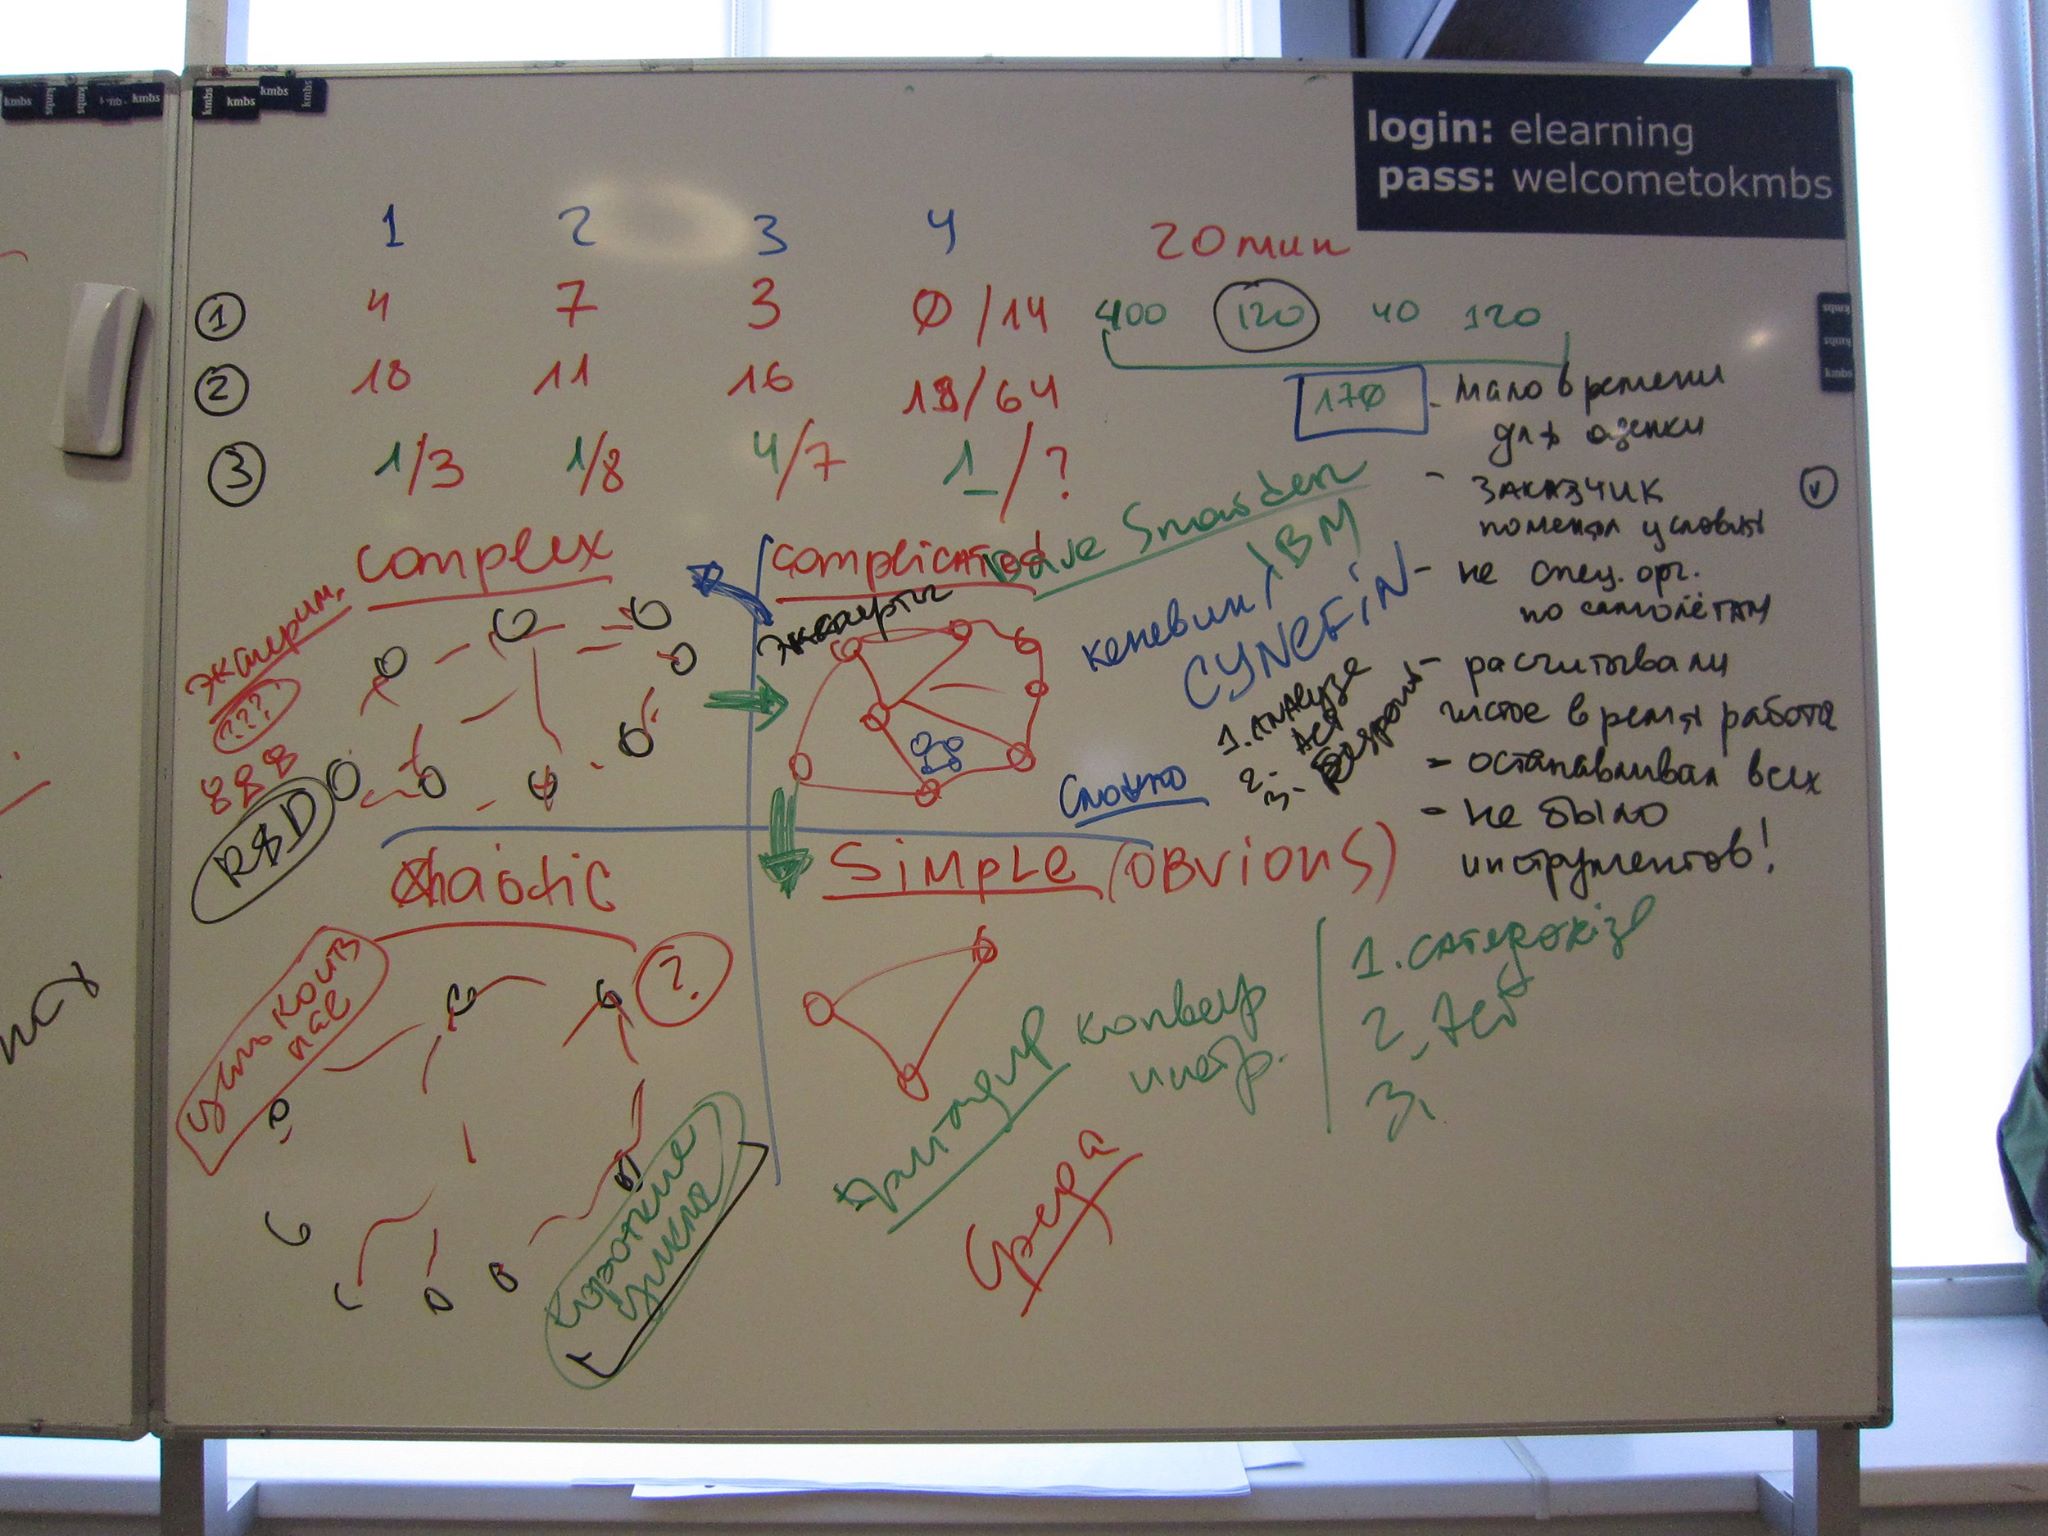 kmbs kmbs kmbs kmbs
kmbs kmbs kmbs kmbs
login: elearning
pass: welcometokmbs
1 2 3 4
20 мин
① 4 7 3 0/14
400 120 40 120
② 18 11 16 19/64
170
③ 1/3 1/8 4/7 1/?
- мало времени
для оценки
- заказчик
поменял условия
- не спец. орг.
по самолётам
- расчитывали
чистое время работа
- останавливал всех
- не было
инструментов!
kmbs
kmbs
kmbs
complex
complicated
Dave Snowden
IBM
кеневин/
CYNEFiN
эксперим.
???
R&D
эксперты
1. Analyze
2. Act
3.
Сложно
Chaotic
Simple (obvious)
?
короткие
циклы
конвеер
инстр.
1. categorize
2. Act
3.
Среда